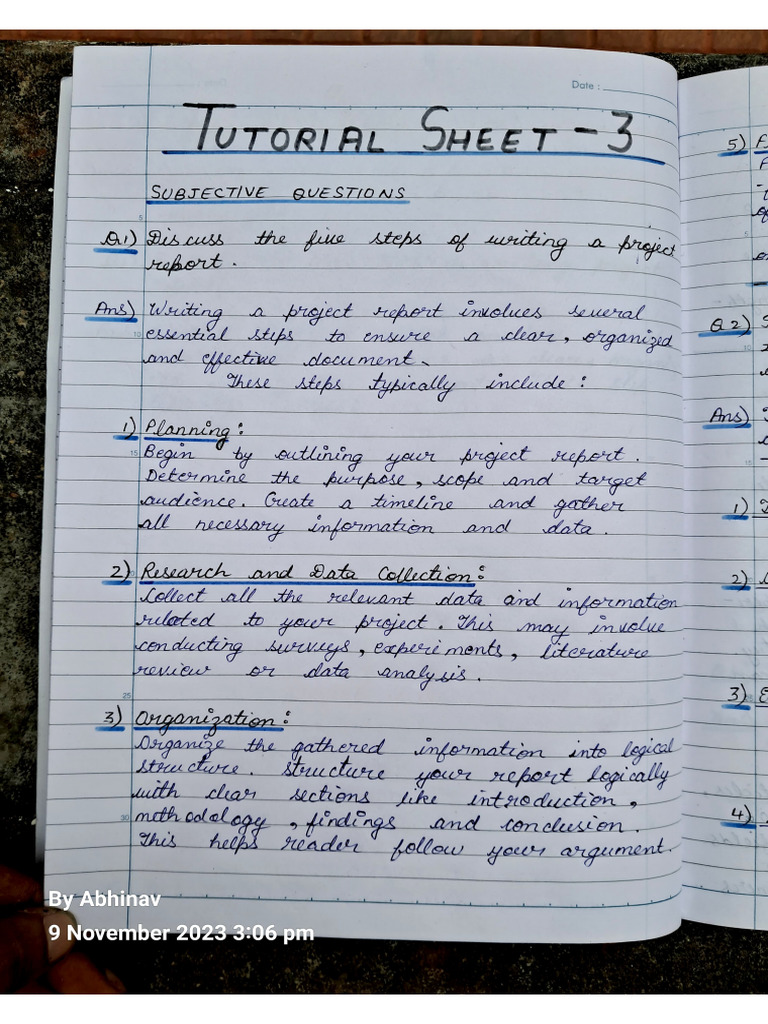 Date :
TUTORIAL SHEET - 3
SUBJECTIVE QUESTIONS
Q.1) Discuss the five steps of writing a project
report.
Ans) Writing a project report involves several
essential steps to ensure a clear, organized
and effective document.
These steps typically include :
1) Planning :
Begin by outlining your project report.
Determine the purpose, scope and target
audience. Create a timeline and gather
all necessary information and data.
2) Research and Data Collection :
Collect all the relevant data and information
related to your project. This may involve
conducting surveys, experiments, literature
review or data analysis.
3) Organization :
Organize the gathered information into logical
structure. Structure your report logically
with clear sections like introduction,
methodology, findings and conclusion.
This helps reader follow your argument.
5)
Q.2)
Ans)
1)
2)
3)
4)
By Abhinav
9 November 2023 3:06 pm